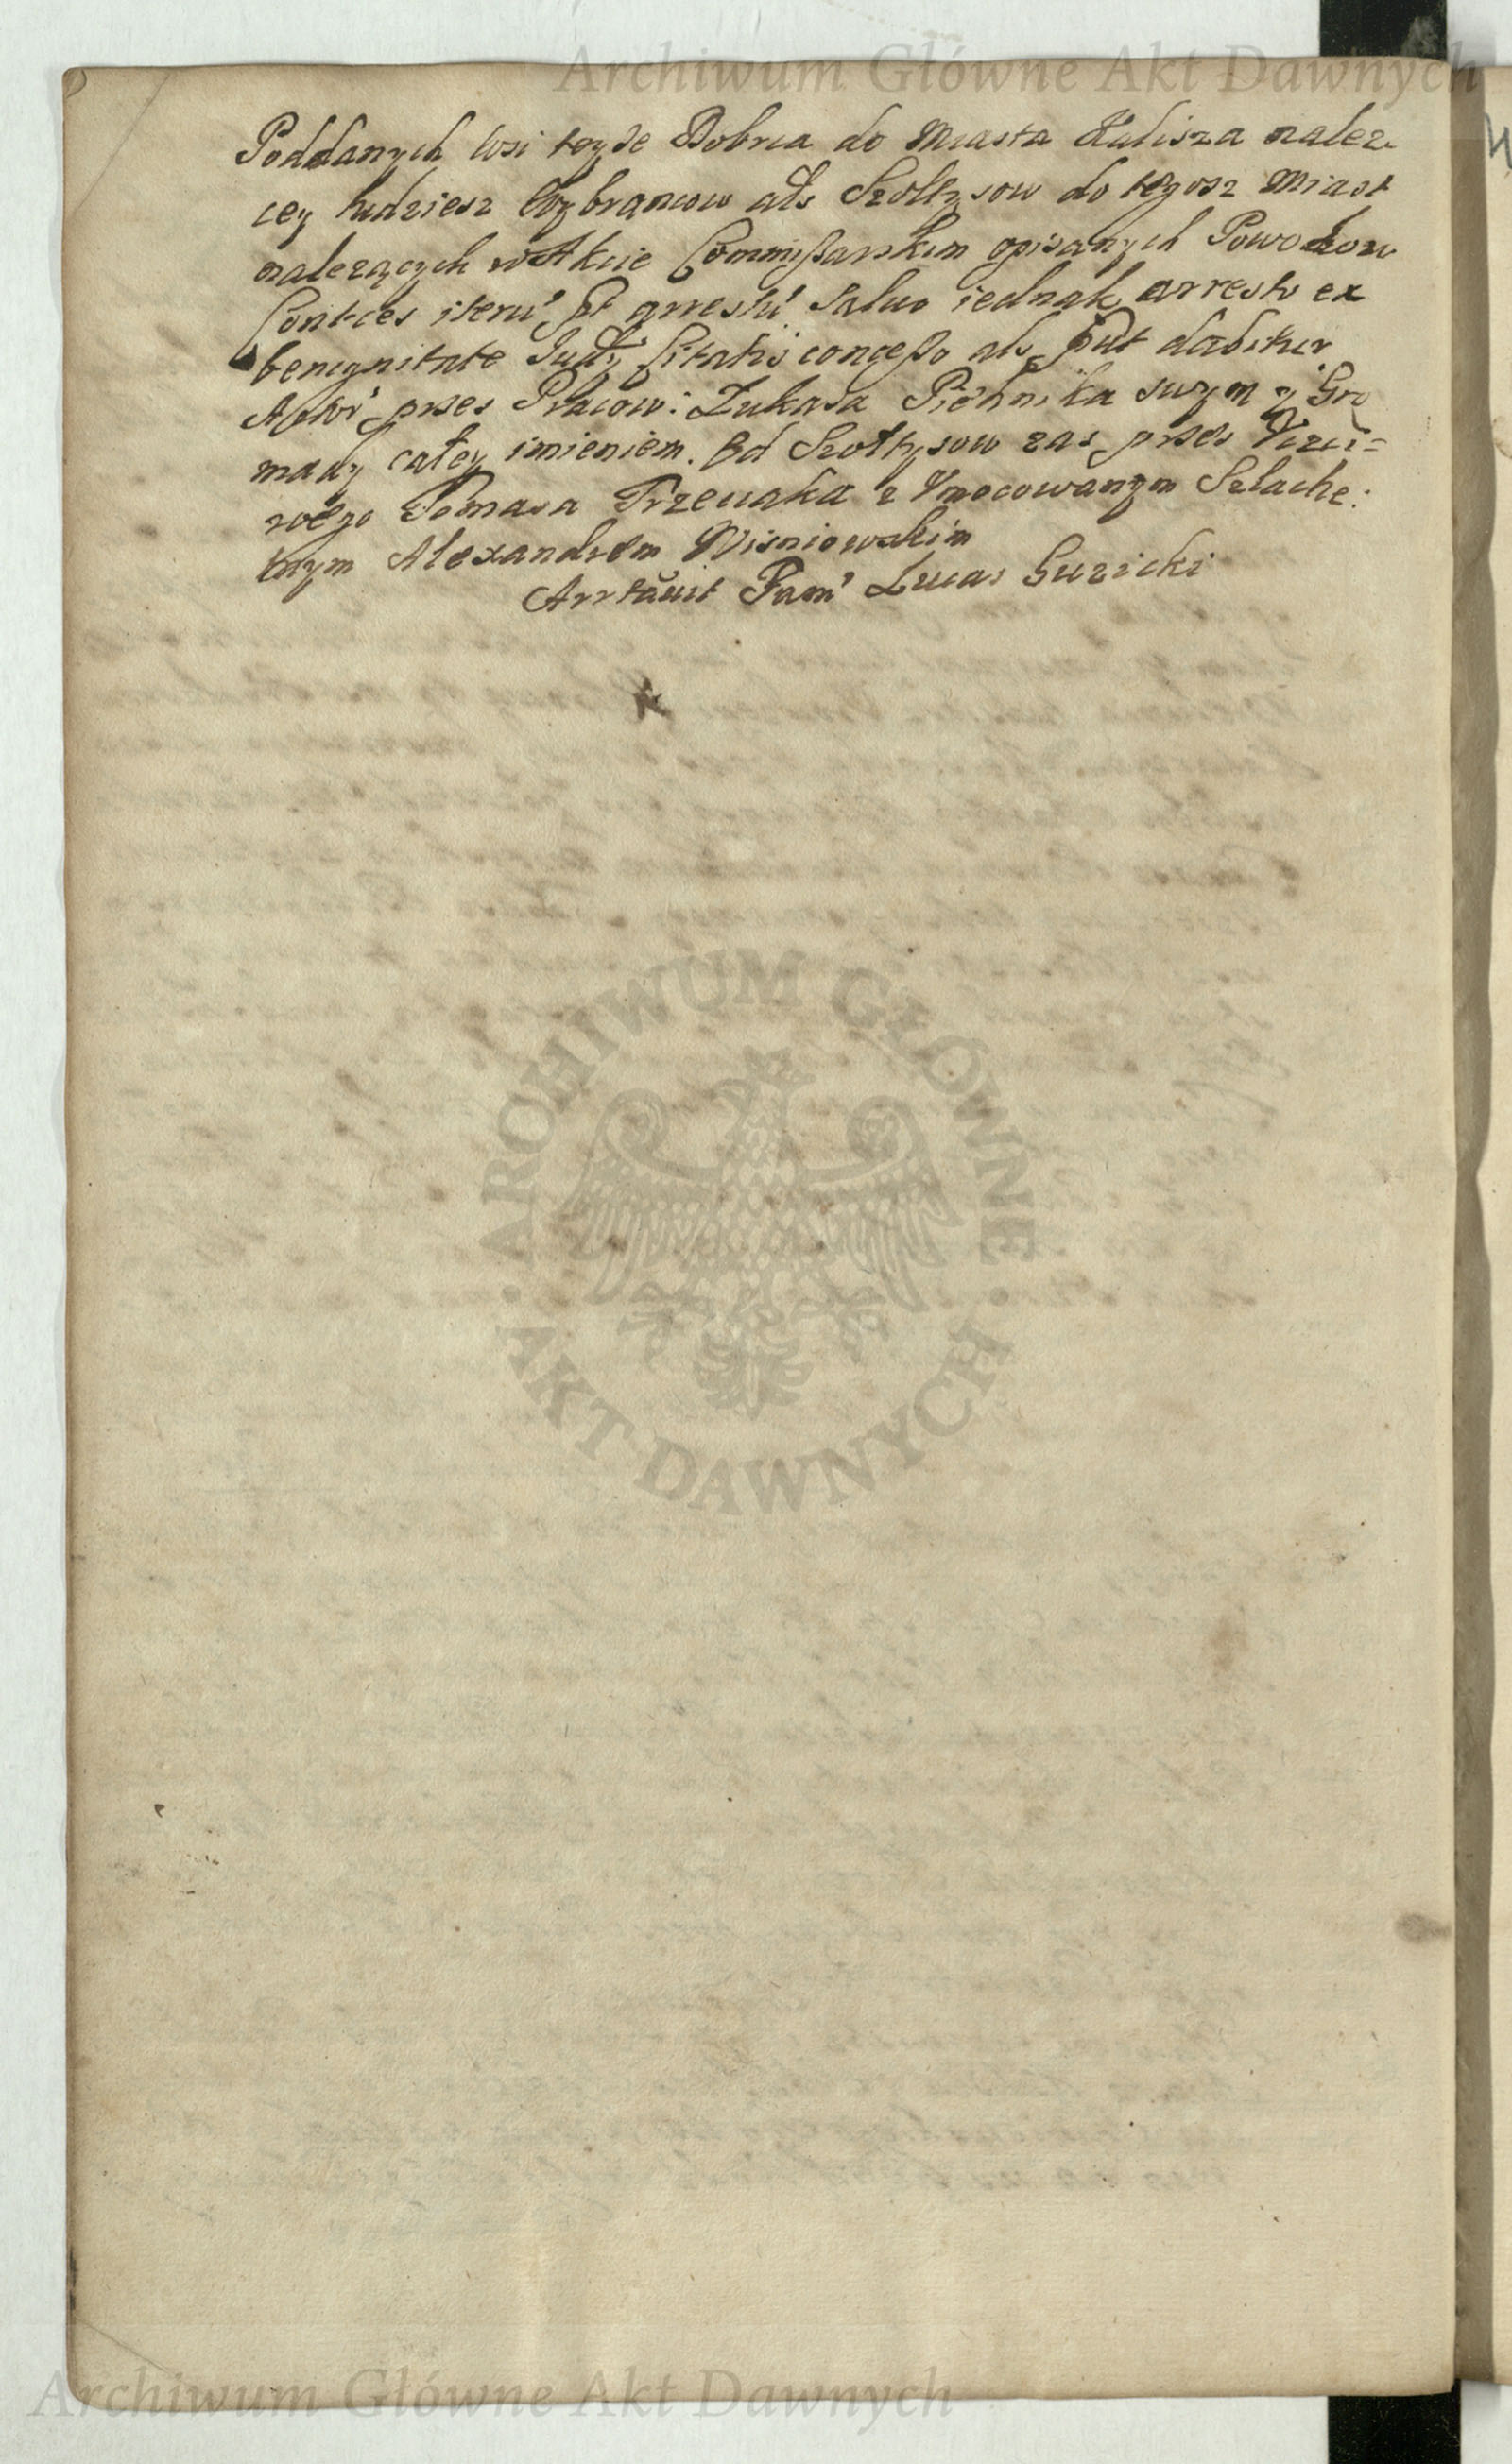 Archiwum Główne Akt Dawnych
Poddanych wsi teyże Dobrca do Miasta Kalisza należ
cey tudziesz Wybrancow als Szołtysow do tegosz Miast
należących w Akcie Commißarskim opisanych Powodow
arrestu Salvo iednak arrestu ex
benignitate conceßo als dabitur
przes Pracow: Łukasza Piechnika swym y Gro
mady całey imieniem. Od Szołtysow zas przes
Tomasza Trzeciaka z Vmocowanym Szlache:
tnym Alexandrem Wisniowskim
Fam' Lucas Guzicki
ARCHIWUM GŁÓWNE
· AKT DAWNYCH ·
Archiwum Główne Akt Dawnych